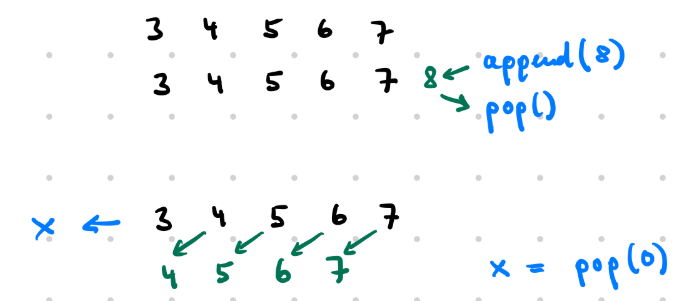 3 4 5 6 7
3 4 5 6 7 8 append(8)
pop()
x 3 4 5 6 7
4 5 6 7
x = pop(0)